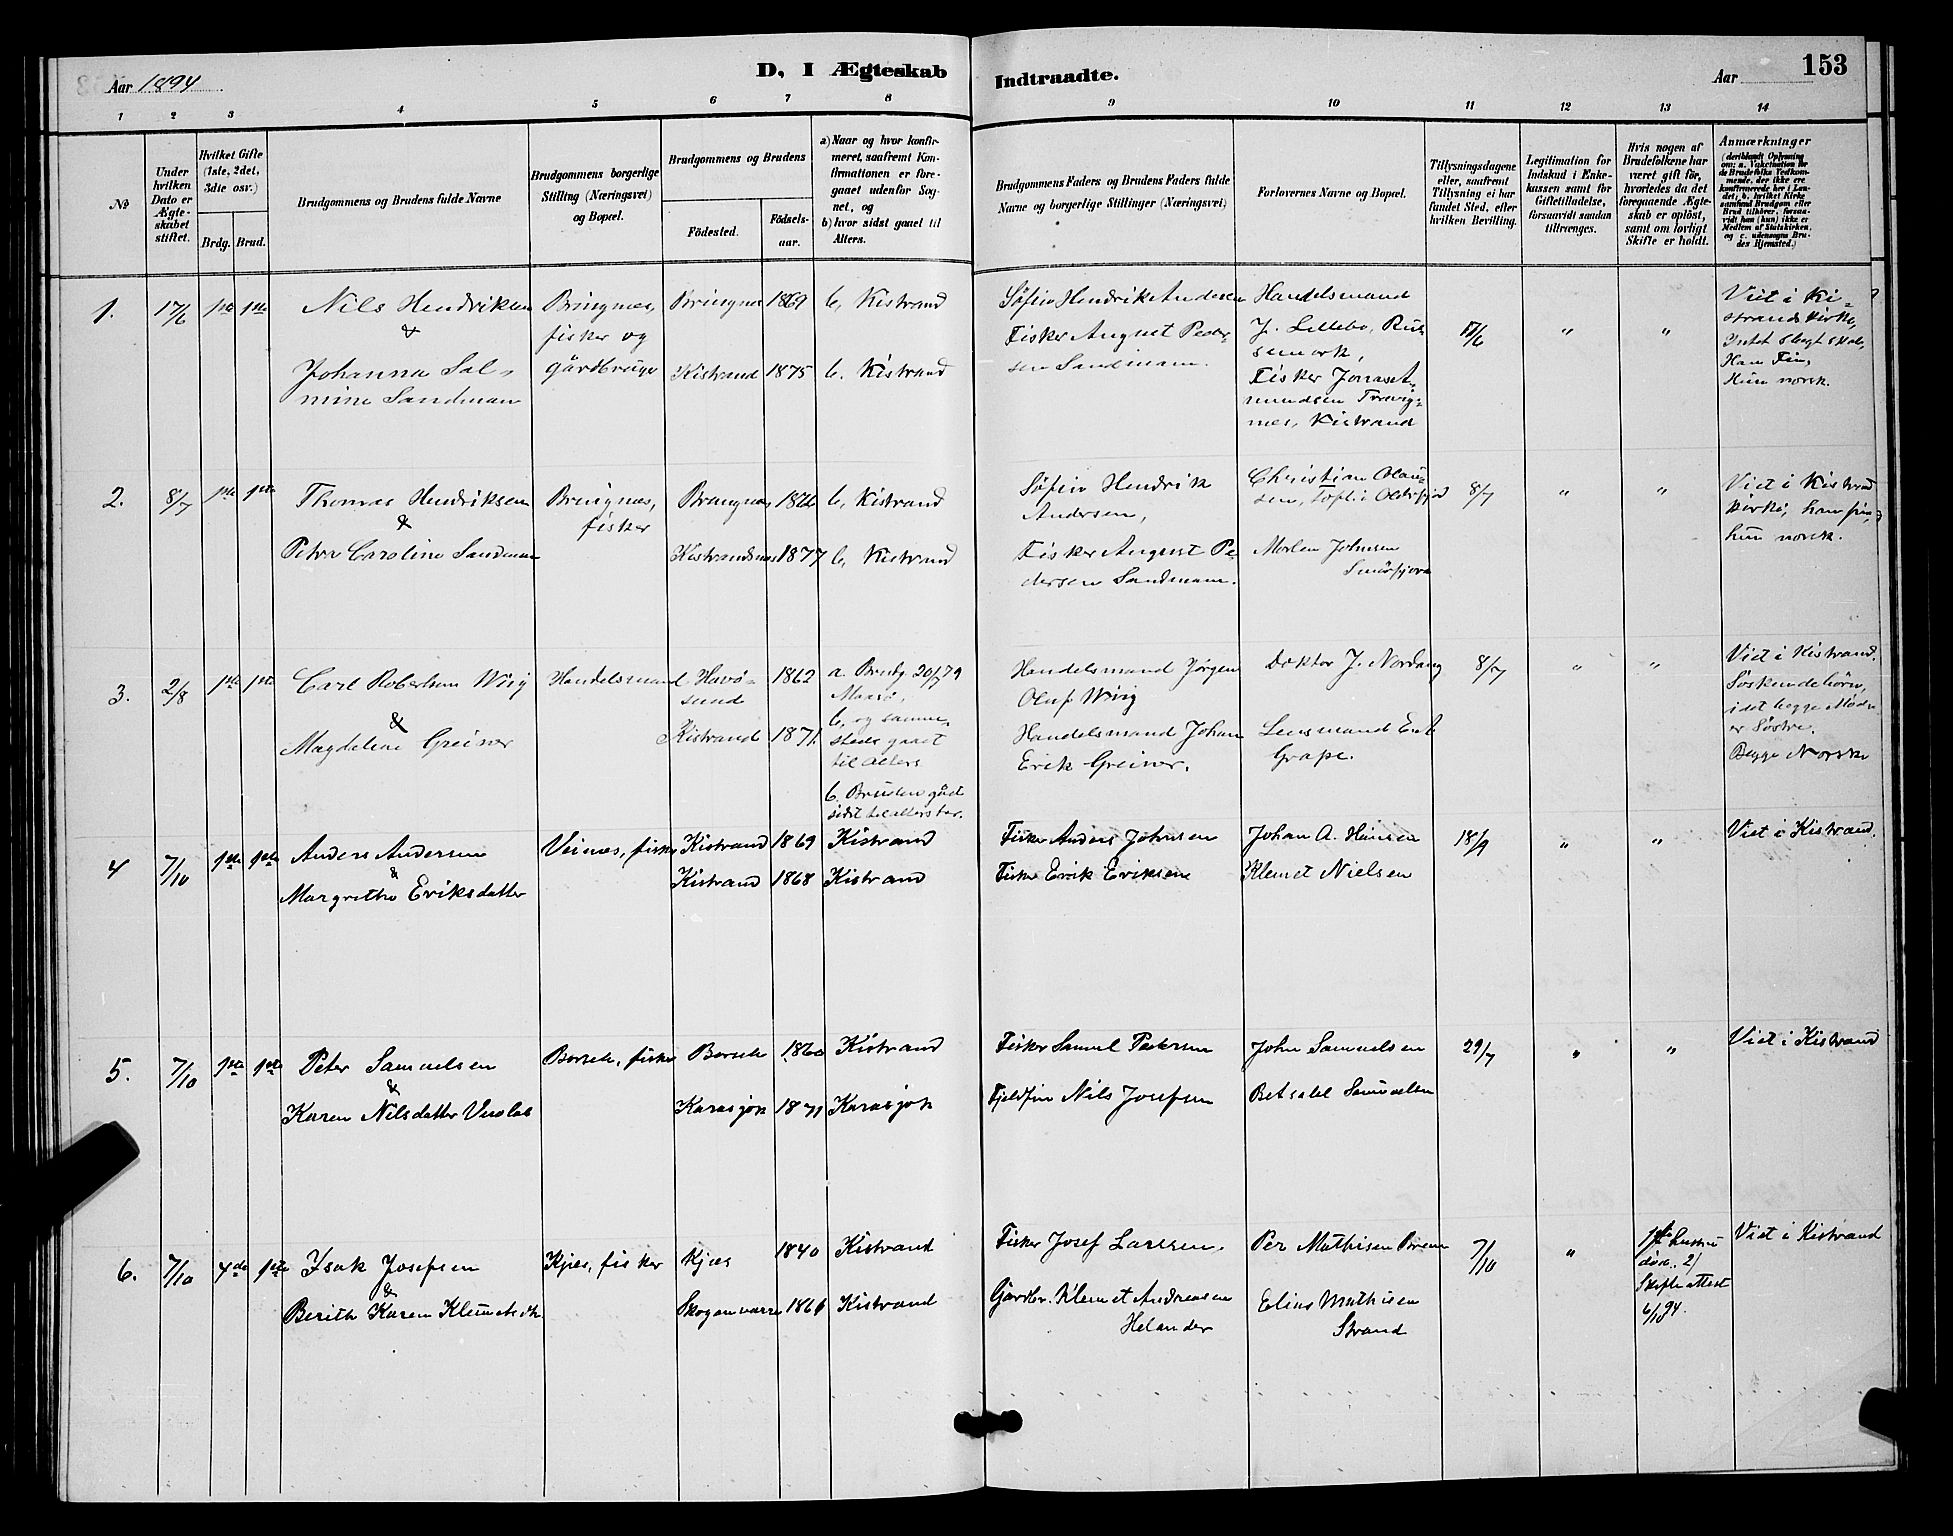 Aar 1894
D, I Ægteskab
Indtraadte.
Aar
153
1 2 3 4 5 6 7 8 9 10 11 12 13 14
No
Under hvilken Dato er Ægteskabet stiftet.
Hvilket Gifte (1ste, 2det, 3die osv.)
Brdg. Brud.
Brudgommens og Brudens fulde Navne
Brudgommens borgerlige Stilling (Næringsvei) og Bopæl.
Brudgommens og Brudens
Födested.
Födselsaar.
a) Naar og hvor konfirmeret, saafremt Konfirmationen er foregaaet udenfor Sognet, og
b) hvor sidst gaaet til Alters.
Brudgommens Faders og Brudens Faders fulde Navne og borgerlige Stillinger (Næringsvei)
Forlovernes Navne og Bopæl.
Tillysningsdagene eller, saafremt Tillysning ei har fundet Sted, efter hvilken Bevilling.
Legitimation for Indskud i Enkekassen samt for Giftetilladelse, forsaavidt saadan tiltrænges.
Hvis nogen af Brudefolkene har været gift för, hvorledes da det foregaaende Ægteskab er oplöst, samt om lovligt Skifte er holdt.
Anmærkninger
(deriblandt Oplysning om: a. Vakcination for de Brudefolks Vedkommende, der ikke ere konfirmerede her i Landet; b. hvilket Kirkesamfund Brudgom eller Brud tilhörer, forsaavidt han (hun) ikke er Medlem af Statskirken, og c. udensogns Brudes Hjemsted.)
1. 17/6 1ste 1ste
Nils Hendriksen
&
Johanna Salmine Sandman
Bringnes, fisker og gårdbruger
Bringnes 1869 b, Kistrand
Kistrand 1875 b. Kistrand
Søfin Hendrik Andersen
Fisker August Pedersen Sandmann.
Handelsmand
J. Lillebo,
Fisker
Kistrand
17/6 " "
Viet i Kistrands kirke,
Intet slegtskab,
Han Fin,
Hun norsk.
2. 8/7 1ste 1ste
Thomas Hendriksen
&
Petra Caroline Sandman
Bringnes,
fisker
Bringnes b, Kistrand
Kistrandsnes 1877 b, Kistrand
Søfin Hendrik
Andersen,
Fisker August Pedersen Sandmann.
Christian Olausen,
Morten Johnsen
Smørfjord
8/7 " "
Viet i Kistrand
kirke, han fin,
hun norsk.
3. 2/8 1ste 1ste
Carl Robertson Wiig
&
Magdeline Greiner
Handelsmand
Havøsund 1862
Kistrand 1871.
a. Brudg. 20/7 79
Maasø,
b, og sammesteds gaaet
til alters
b. Bruden gået
sidst til alters her.
Handelsmand Jørgen
Oluf Wiig
Handelsmand Johan
Erik Greiner.
Doktor J. Nordang
Lensmand
Grape.
8/7 " "
Viet i Kistrand.
Søskendebørn,
idet begge Mødre
er Søstre.
Begge Norske
4 7/10 1ste 1ste
Anders Andersen
&
Margrethe Eriksdatter
Veines, fisker
Kistrand 1869 Kistrand
Kistrand 1868 Kistrand
Fisker Anders Johnsen
Fisker Erik Eriksen
Johan A. Hansen
Klemet Nielsen
18/9 " "
Viet i Kistrand.
5. 7/10 1ste 1ste
Peter Samuelsen
&
Karen Nilsdatter
Borsele, fisker
Borsele 1860 Kistrand
Karasjok 1871 Karasjok
Fisker Samuel Pedersen
Fjeldfin Nils Josefsen
John Samuelsen
Betsalel Samuelsen
29/7 " "
Viet i Kistrand
6. 7/10 4de 1ste
Isak Josefsen
&
Berith Karen Klemetsdtr
Kjæs, fisker
Kjæs 1840 Kistrand
Skoganvarre Kistrand
Fisker Josef Larssen.
Gårdbr. Klemet Andreasen
Helander
Per Mathisen
Elias Mathisen
Strand
7/10 "
1ste hustru
død. 2)
Skifteattest
6/10 94.
Viet i Kistrand